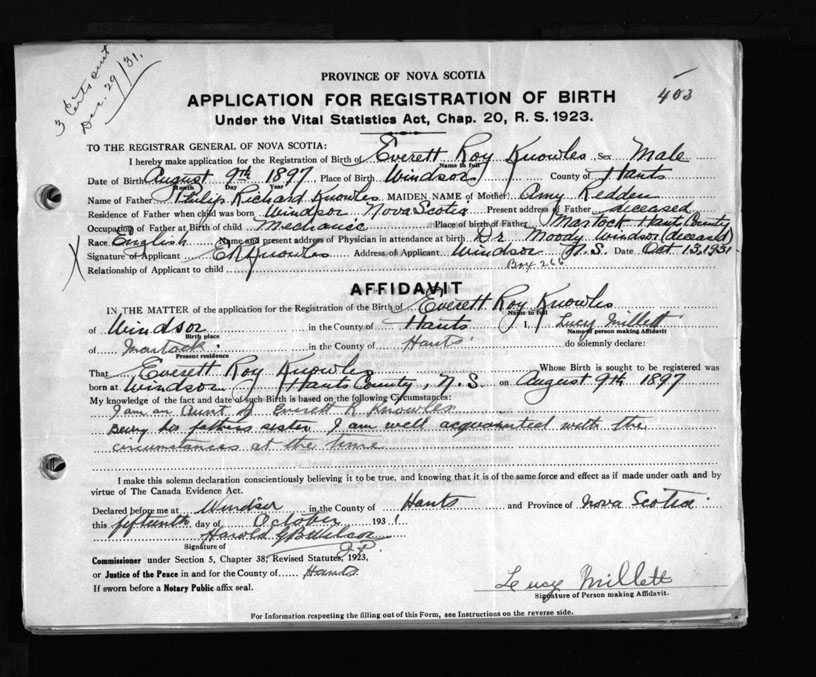 3 Certs sent
Dec. 29/31.
PROVINCE OF NOVA SCOTIA
APPLICATION FOR REGISTRATION OF BIRTH
403
Under the Vital Statistics Act, Chap. 20, R. S. 1923.
TO THE REGISTRAR GENERAL OF NOVA SCOTIA:
I hereby make application for the Registration of Birth of Everett Roy Knowles Sex Male
Name in full
Date of Birth August 9th 1897 Place of Birth Windsor County of Hants
Month Day Year
Name of Father Philip Richard Knowles MAIDEN NAME of Mother Amy Redden
Residence of Father when child was born Windsor Nova Scotia Present address of Father deceased
Occupation of Father at Birth of child Mechanic Place of birth of Father Martock Hants County
Race English Name and present address of Physician in attendance at birth Dr Moody Windsor (deceased)
X Signature of Applicant E R Knowles Address of Applicant Windsor N.S. Date Oct 13, 1931
Relationship of Applicant to child Box 266
AFFIDAVIT
IN THE MATTER of the application for the Registration of the Birth of Everett Roy Knowles
Name in full
of Windsor in the County of Hants I, Lucy Millett
Birth place Name of person making Affidavit
of Martock in the County of Hants do solemnly declare:
Present residence
That Everett Roy Knowles Whose Birth is sought to be registered was
born at Windsor Hants County, N.S. on August 9th 1897
My knowledge of the fact and date of such Birth is based on the following Circumstances:
I am an Aunt of Everett R. Knowles
Being his fathers sister I am well acquainted with the
circumstances at the time
I make this solemn declaration conscientiously believing it to be true, and knowing that it is of the same force and effect as if made under oath and by
virtue of The Canada Evidence Act.
Declared before me at Windsor in the County of Hants and Province of Nova Scotia
this fifteenth day of October 1931
Harold Wilcox
Signature of
J.P.
Commissioner under Section 5, Chapter 38, Revised Statutes, 1923,
or Justice of the Peace in and for the County of Hants
If sworn before a Notary Public affix seal.
Lucy Millett
Signature of Person making Affidavit.
For Information respecting the filling out of this Form, see Instructions on the reverse side.